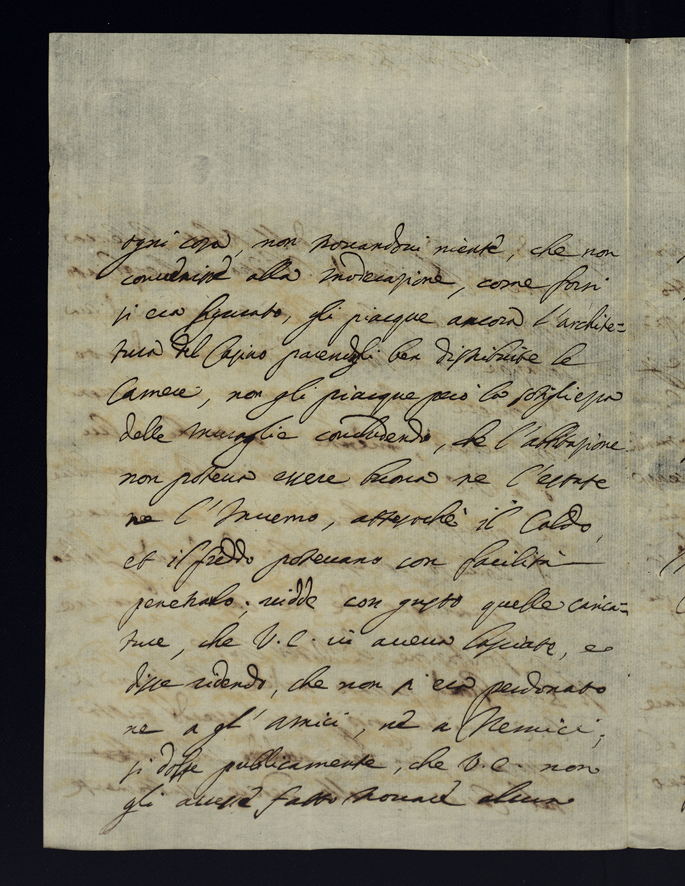 ogni cosa, non trovandovi niente, che non
convenisse alla moderazione, come forsi
si era figurato, gli piacque ancora l'archite=
tura del Casino parendogli ben distribuite le
Camere, non gli piacque però la sottigliezza
delle muraglie concludendo, che l'abitazione
non poteva essere buona ne l'estate
ne l'Inverno, attesoche il Caldo,
et il freddo potevano con facilità
penetrarlo; vidde con gusto quelle carica=
ture, che V.E. vi aveva lasciate, e
disse ridendo, che non si era perdonato
ne a gl'amici, nè a Nemici;
si dolse publicamente, che V.E. non
gli avesse fatto trovare alcun